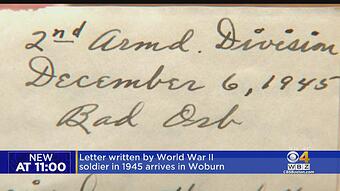 2nd Armd. Division
December 6, 1945
Bad Orb
NEW
AT 11:00
Letter written by World War II
soldier in 1945 arrives in Woburn
4
WBZ
CBSBoston.com